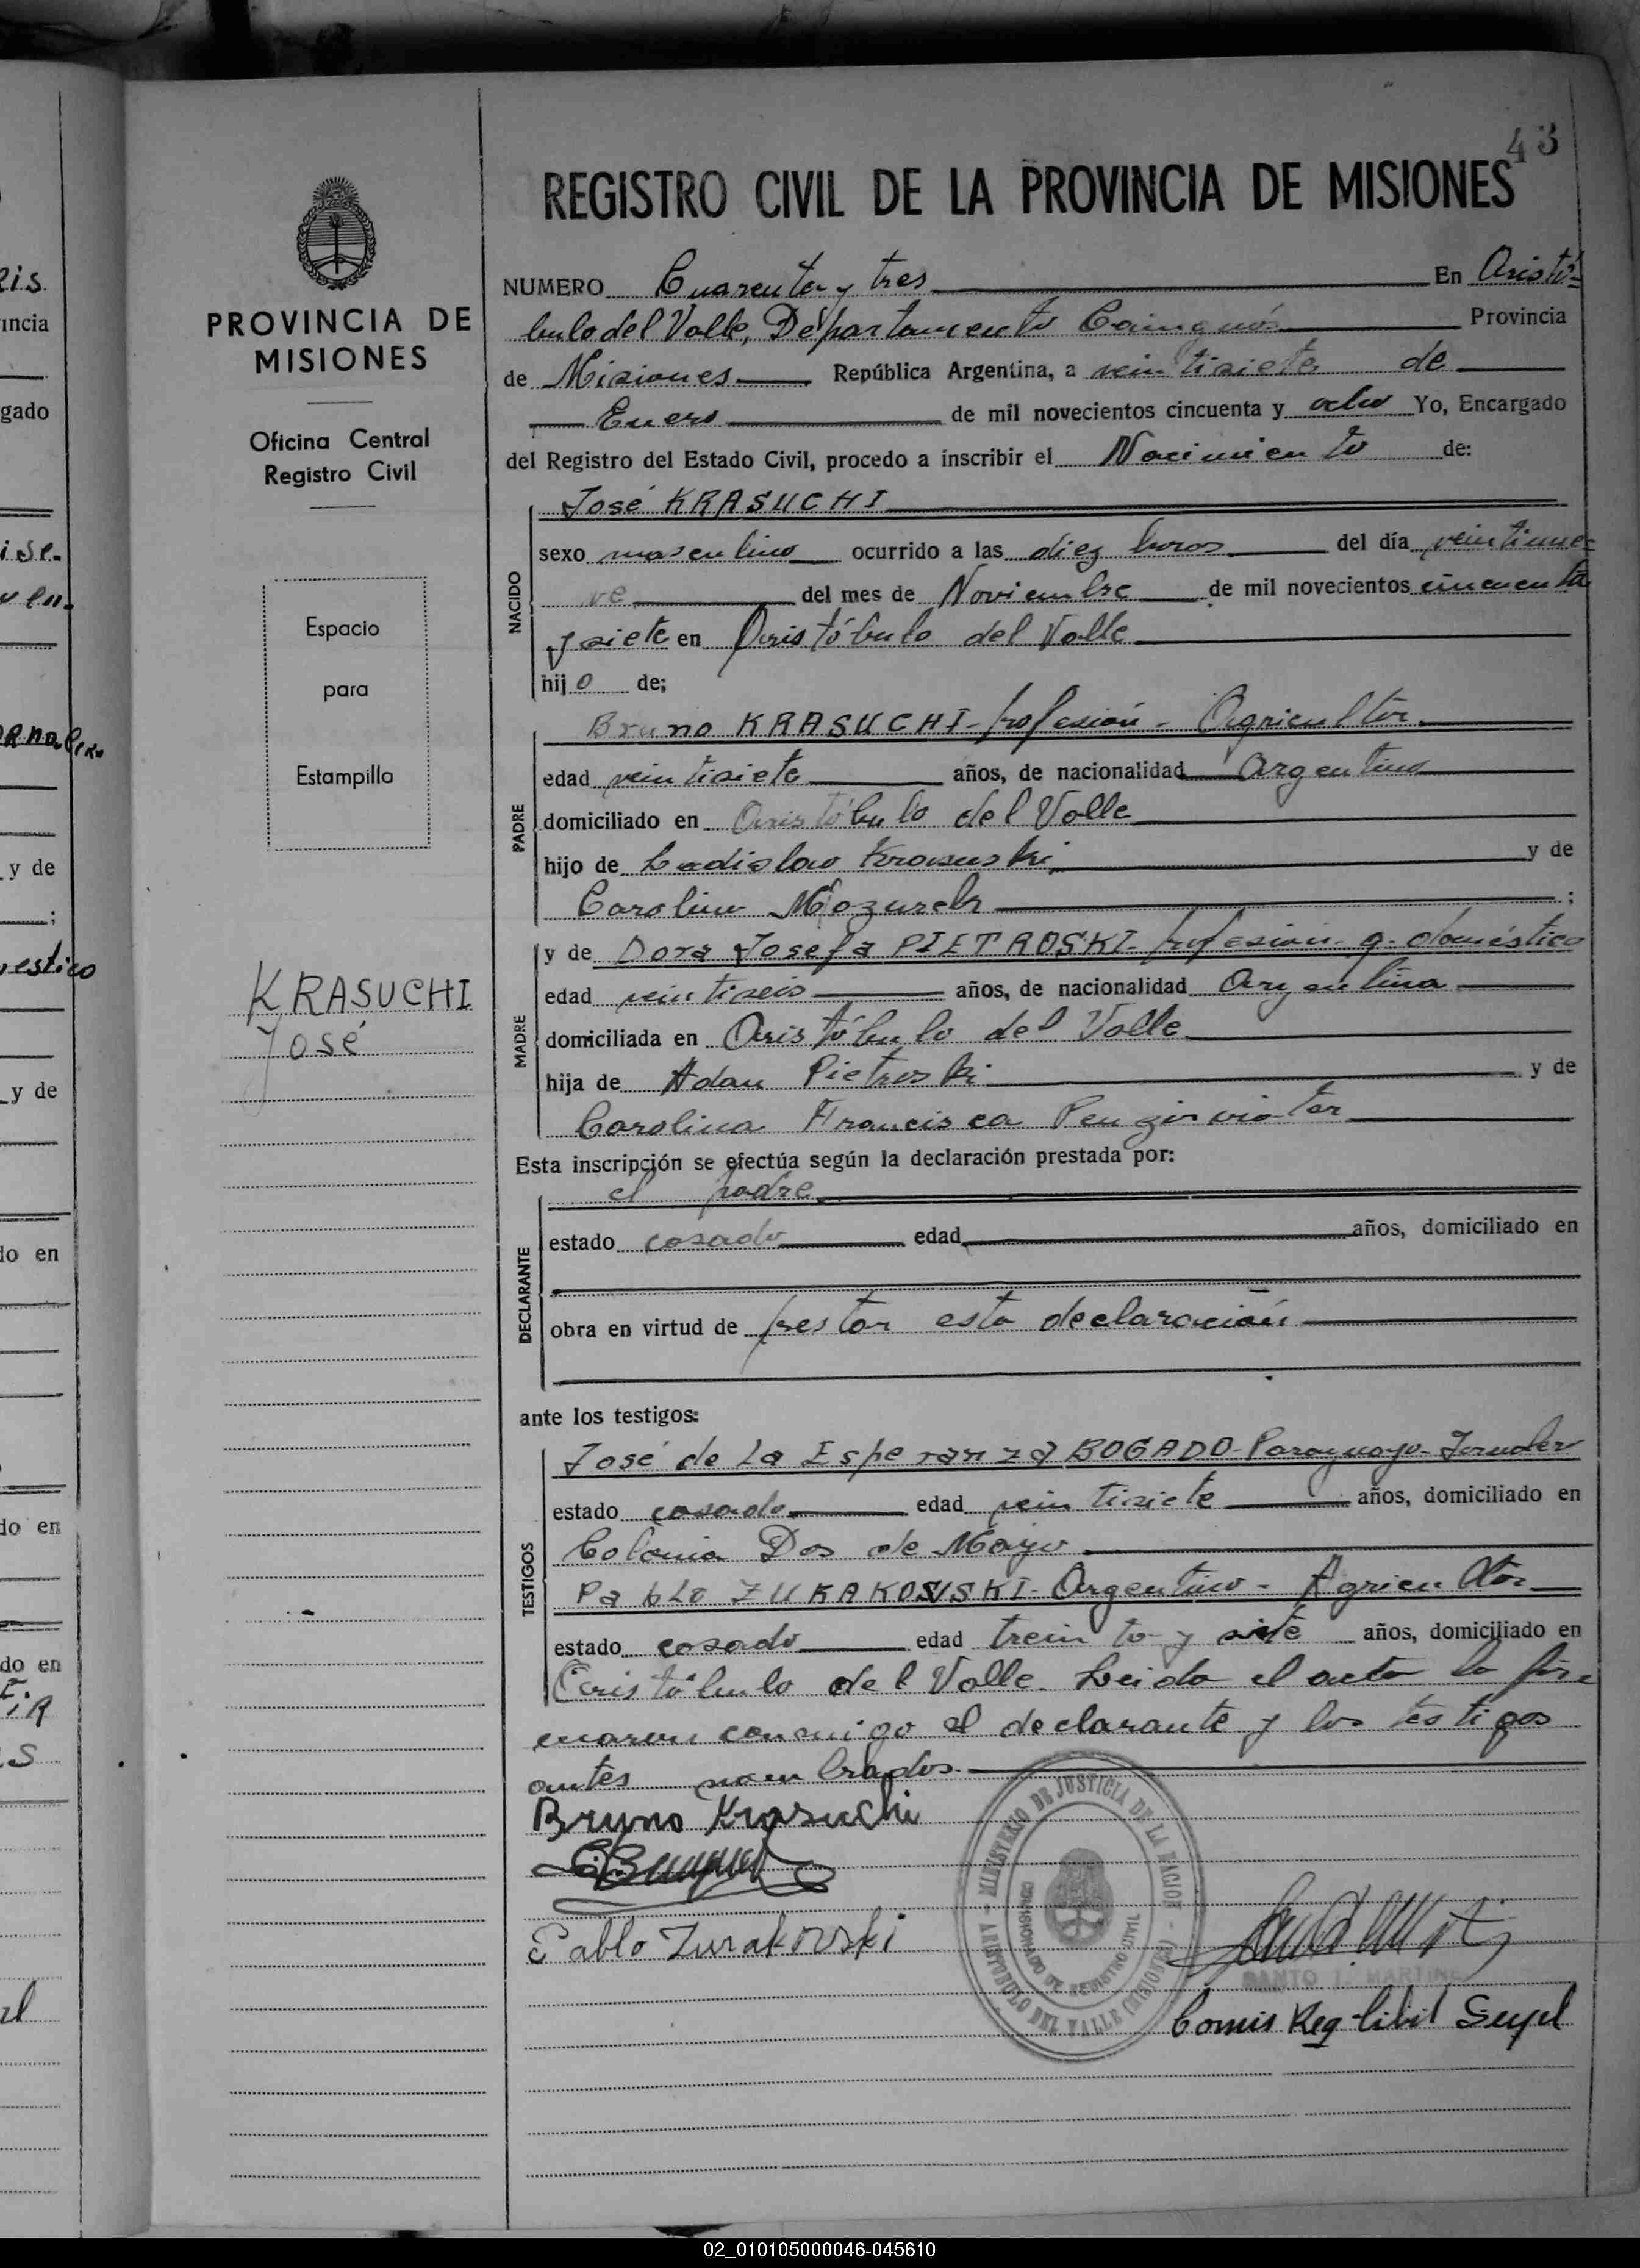 43
REGISTRO CIVIL DE LA PROVINCIA DE MISIONES
PROVINCIA DE
MISIONES
Oficina Central
Registro Civil
Espacio
para
Estampilla
KRASUCHI
José
NUMERO Cuarenta y tres En Aristó-
bulo del Valle, Departamento Cainguás Provincia
de Misiones República Argentina, a veintisiete de
Enero de mil novecientos cincuenta y ocho Yo, Encargado
del Registro del Estado Civil, procedo a inscribir el Nacimiento de:
NACIDO
José KRASUCHI
sexo masculino ocurrido a las diez horas del día veintinue-
ve del mes de Noviembre de mil novecientos cincuenta
y siete en Aristóbulo del Valle
hijo de;
PADRE
Bruno KRASUCHI- profesión - Agricultor
edad veintisiete años, de nacionalidad Argentino
domiciliado en Aristóbulo del Valle
hijo de Ladislao Krasuski y de
Carolina Mozurek ;
MADRE
y de Dora Josefa PIETROSKI- profesión- q. doméstico
edad veintiseis años, de nacionalidad Argentina
domiciliada en Aristóbulo del Valle
hija de Adan Pietroski y de
Carolina Francisca
Esta inscripción se efectúa según la declaración prestada por:
DECLARANTE
el padre
estado casado edad años, domiciliado en
obra en virtud de prestar esta declaración
ante los testigos:
TESTIGOS
José de La Esperanza BOGADO- Paraguayo- Jornaler
estado casado edad veintisiete años, domiciliado en
Colonia Dos de Mayo
Pablo ZURAKOSVSKI- Argentino - Agricultor
estado casado edad treinta y siete años, domiciliado en
Aristóbulo del Valle. Leida el acta la fir
maron conmigo el declarante y los testigos
antes nombrados.
Bruno Krasuchi
Pablo Zurakovski
MINISTERIO DE JUSTICIA DE LA NACION
ARISTOBULO DEL VALLE (MISIONES)
DE REGISTRO CIVIL
SANTO I. MARTINE
Comis Reg Civil
02_010105000046-045610